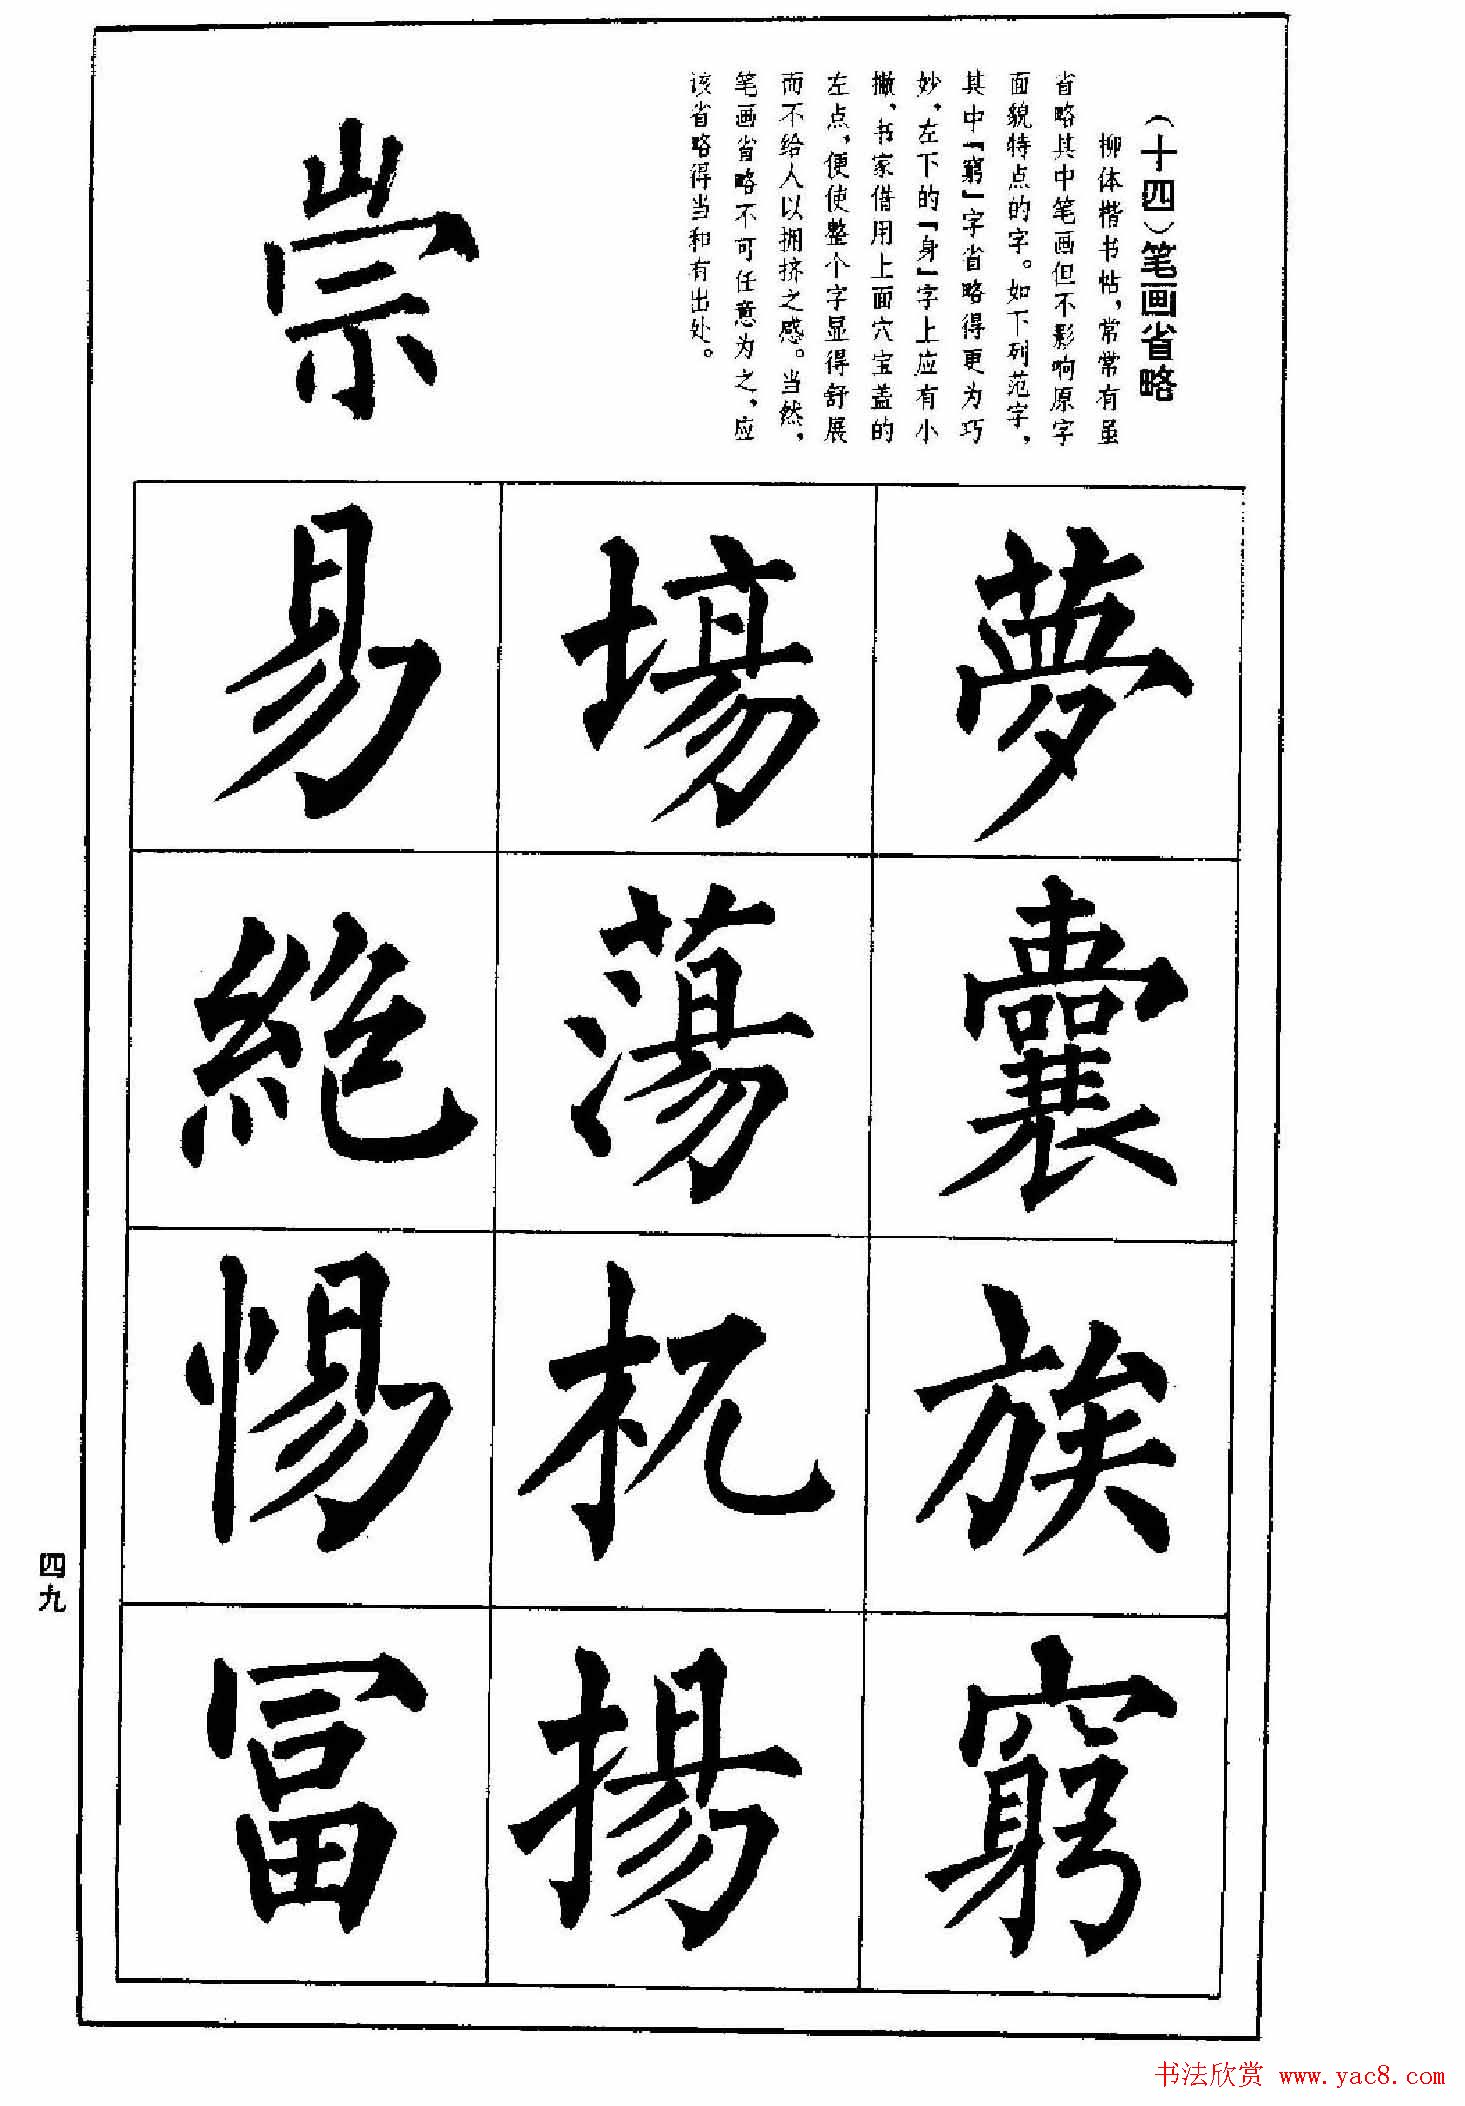 （十四）笔画省略
柳体楷书帖，常常有虽
省略其中笔画但不影响原字
面貌特点的字。如下列范字，
其中『窮』字省略得更为巧
妙，左下的『身』字上应有小
撇，书家借用上面穴宝盖的
左点，便使整个字显得舒展
而不给人以拥挤之感。当然，
笔画省略不可任意为之，应
该省略得当和有出处。
崇
夢
囊
族
窮
塲
蕩
机
揚
易
絕
惕
冨
四九
书法欣赏 www.yac8.com